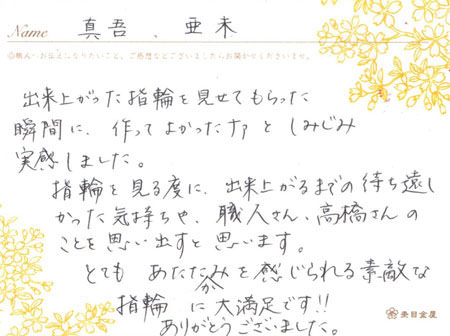 Name 真吾、亜未
◎職人へお伝えになりたいこと、ご感想などございましたらお聞かせくださいませ。
出来上がった指輪を見せてもらった
瞬間に、作ってよかったナァ と しみじみ
実感しました。
指輪を見る度に、出来上がるまでの待ち遠し
かった気持ちや、職人さん、高橋さんの
ことを思い出すと思います。
とても あたたみを感じられる素敵な
分
指輪 に大満足です!!
ありがとうございました。
杢目金屋